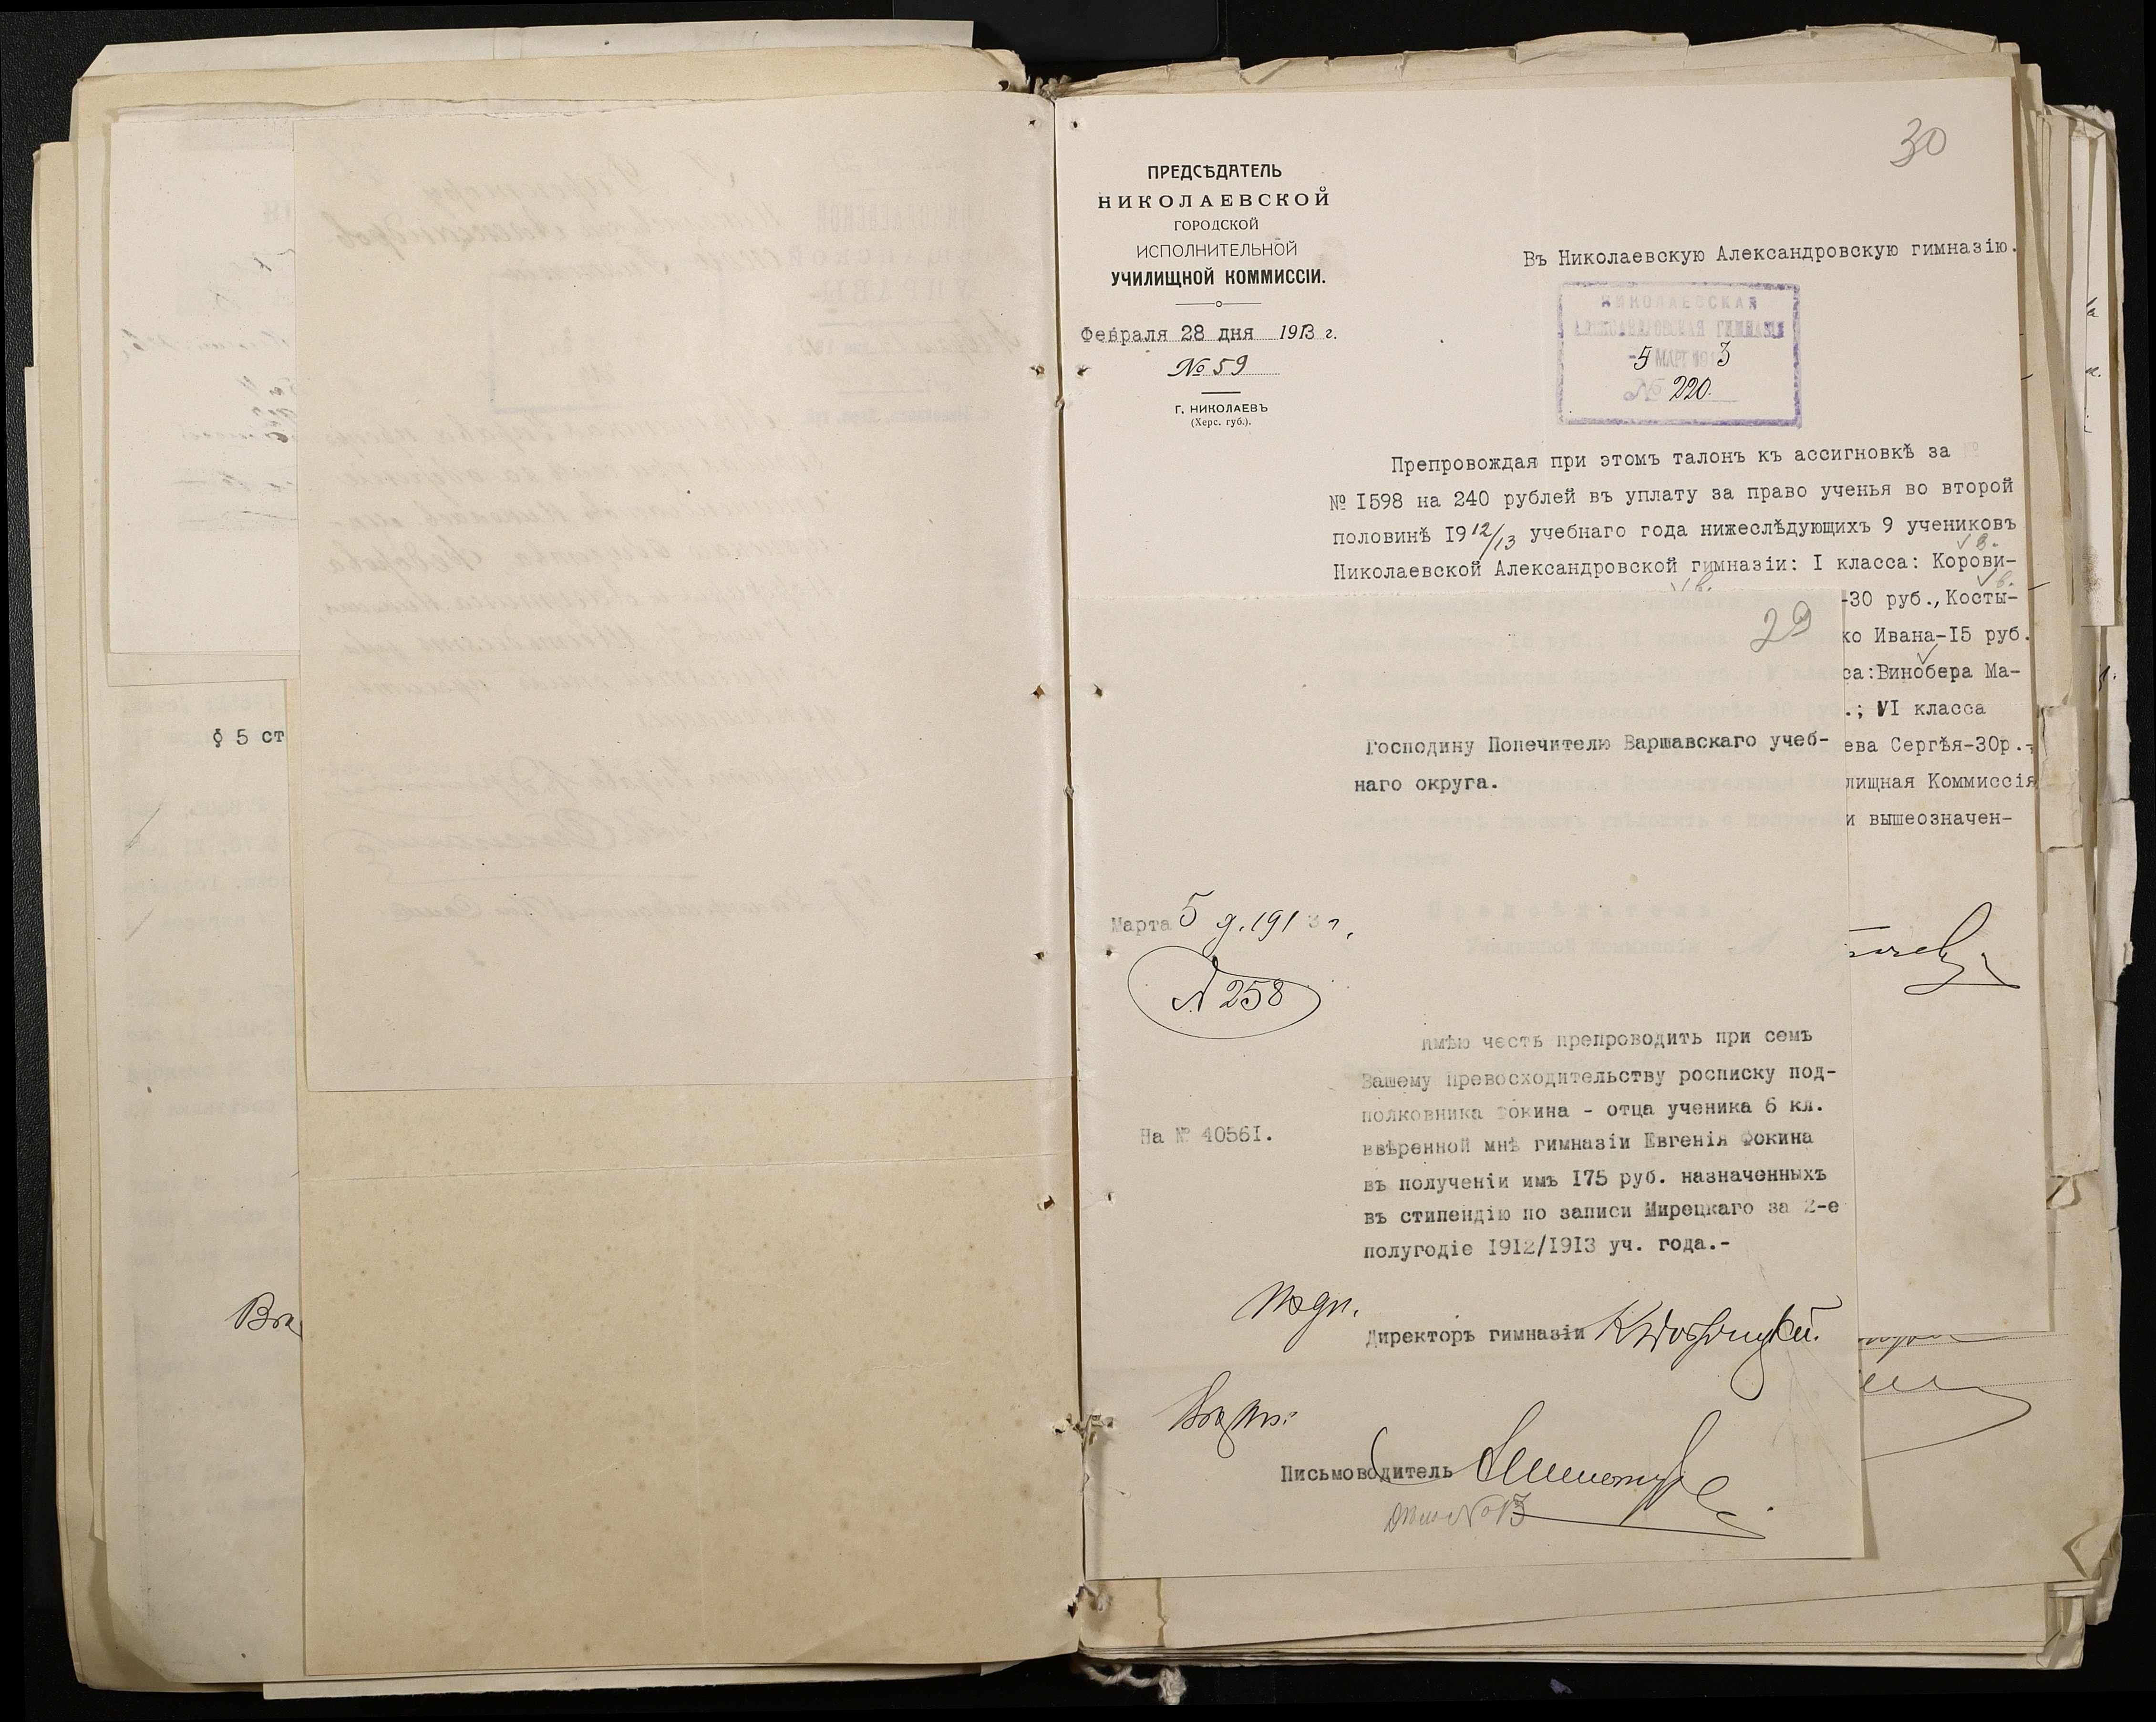 § 5 ст
30
ПРЕДСѢДАТЕЛЬ
НИКОЛАЕВСКОЙ
ГОРОДСКОЙ
ИСПОЛНИТЕЛЬНОЙ
УЧИЛИЩНОЙ КОММИССІИ.
Февраля 28 дня 1913 г.
№ 59
Г. НИКОЛАЕВЪ
(Херс. губ.).
Въ Николаевскую Александровскую гимназію.
НИКОЛАЕВСКАЯ
АЛЕКСАНДРОВСКАЯ ГИМНАЗІЯ
-5 МАРТ 1913
№ 220.
Препровождая при этомъ талонъ къ ассигновкѣ за
№ I598 на 240 рублей въ уплату за право ученья во второй
половинѣ I912/13 учебнаго года нижеслѣдующихъ 9 учениковъ
Николаевской Александровской гимназіи: I класса: Корови-
-30 руб., Косты-
ко Ивана-I5 руб.
са: Винобера Ма-
.; VI класса
ева Сергѣя-30р.-
лищная Коммиссія
и вышеозначен-
29
Господину Попечителю Варшавскаго учеб-
наго округа.
Марта 5 д. 1913 г.
№ 258
На № 4056I.
Имѣю честь препроводить при семъ
Вашему Превосходительству росписку под-
полковника Фокина - отца ученика 6 кл.
ввѣренной мнѣ гимназіи Евгенія Фокина
въ полученіи имъ I75 руб. назначенныхъ
въ стипендію по записи Мирецкаго за 2-е
полугодіе I9I2/I9I3 уч. года.-
Подп.
Директоръ гимназіи
Письмоводитель
75